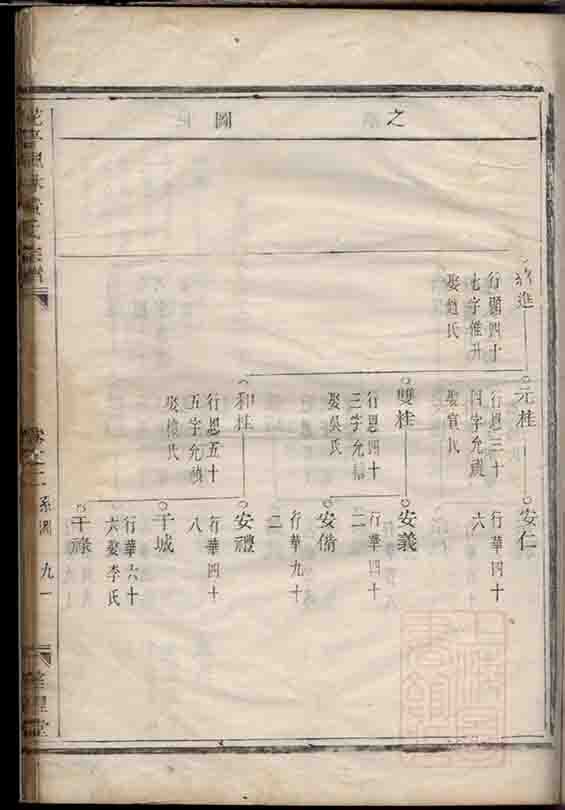 之 圖
進
行顯四十
七字惟升
娶趙氏
元桂
行恩三十
四字允禎
娶賀氏
雙桂
行恩四十
三字允
娶吳氏
和桂
行恩五十
五字允禎
娶 氏
安仁
行華四十
六
安義
行華四十
二
安術
行華九十
二
安禮
行華四十
八
干城
行華六十
六娶李氏
干祿
氏宗譜
卷之二
系圖
九一
堂